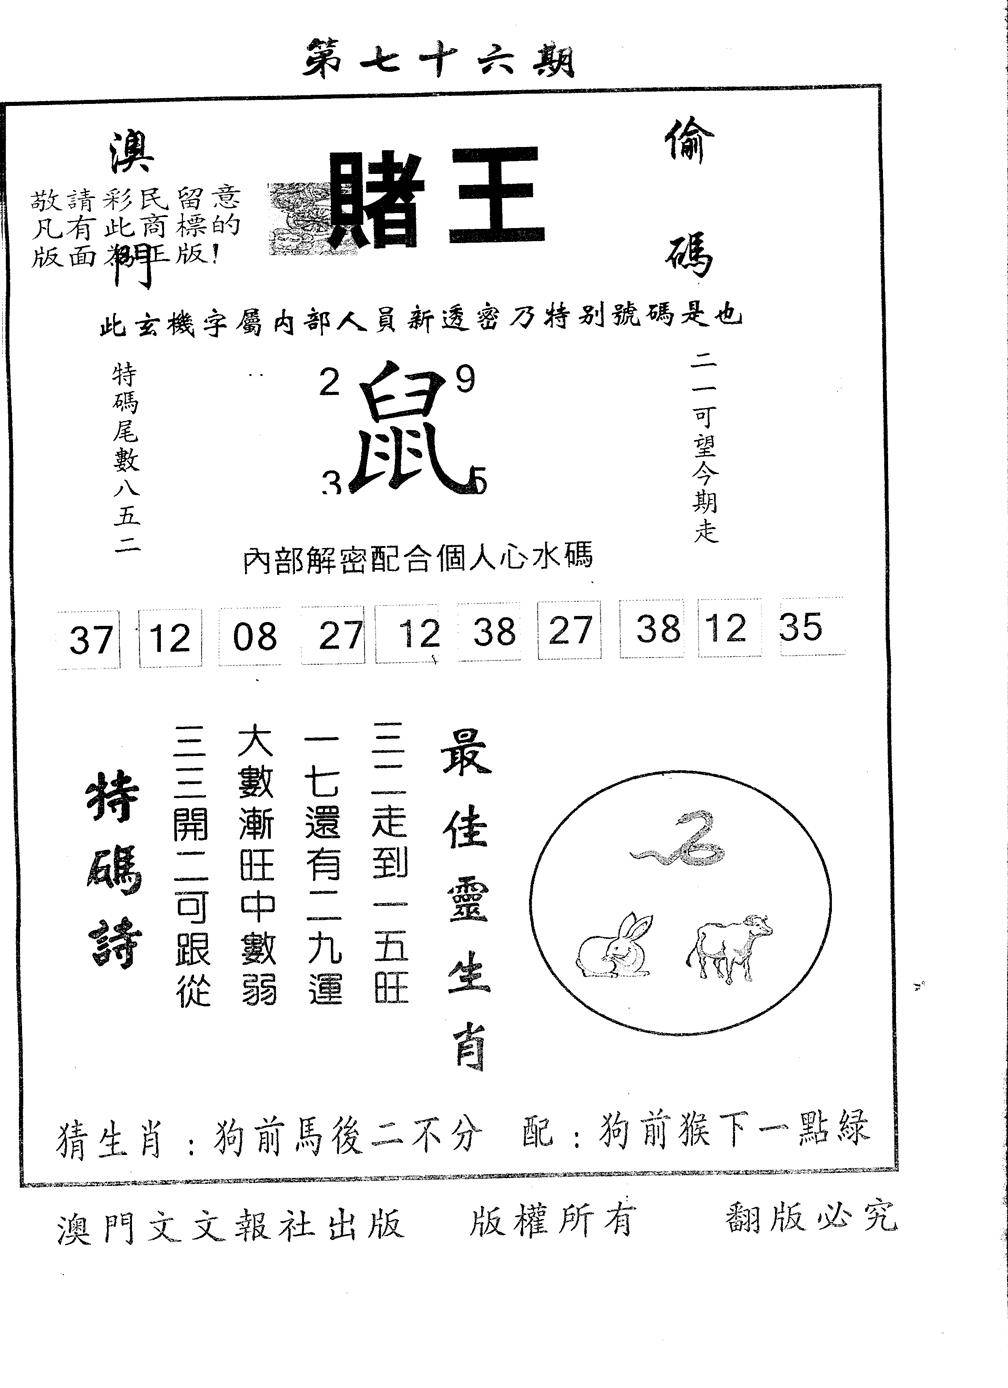 第七十六期
澳門
賭王
偷碼
敬請彩民留意
凡有此商標的
版面為正版!
此玄機字屬内部人員新透密乃特别號碼是也
特碼尾數八五二
2 9
鼠
3 5
二一可望今期走
內部解密配合個人心水碼
37 12 08 27 12 38 27 38 12 35
最佳靈生肖
三二走到一五旺
一七還有二九運
大數漸旺中數弱
三三開二可跟從
特碼詩
猜生肖：狗前馬後二不分 配：狗前猴下一點緑
澳門文文報社出版 版權所有 翻版必究